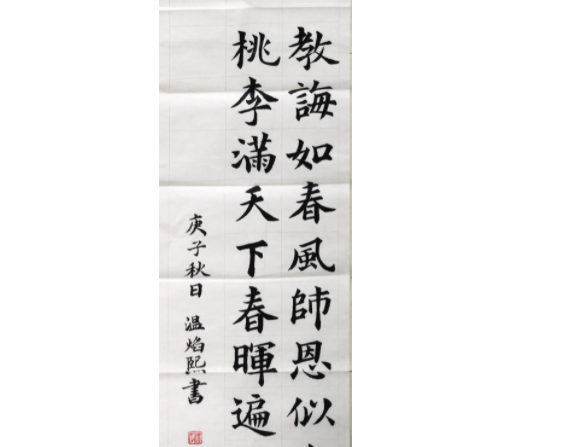 教誨如春風師恩似
桃李滿天下春暉遍
庚子秋日 温焰熙書